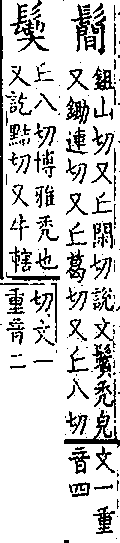 鬜
鉏山切又丘閑切說文鬢禿皃
又鋤連切又丘葛切又丘八切
文一重
音四
丘八切博雅禿也
又訖黠切又牛轄
切文一
重音二